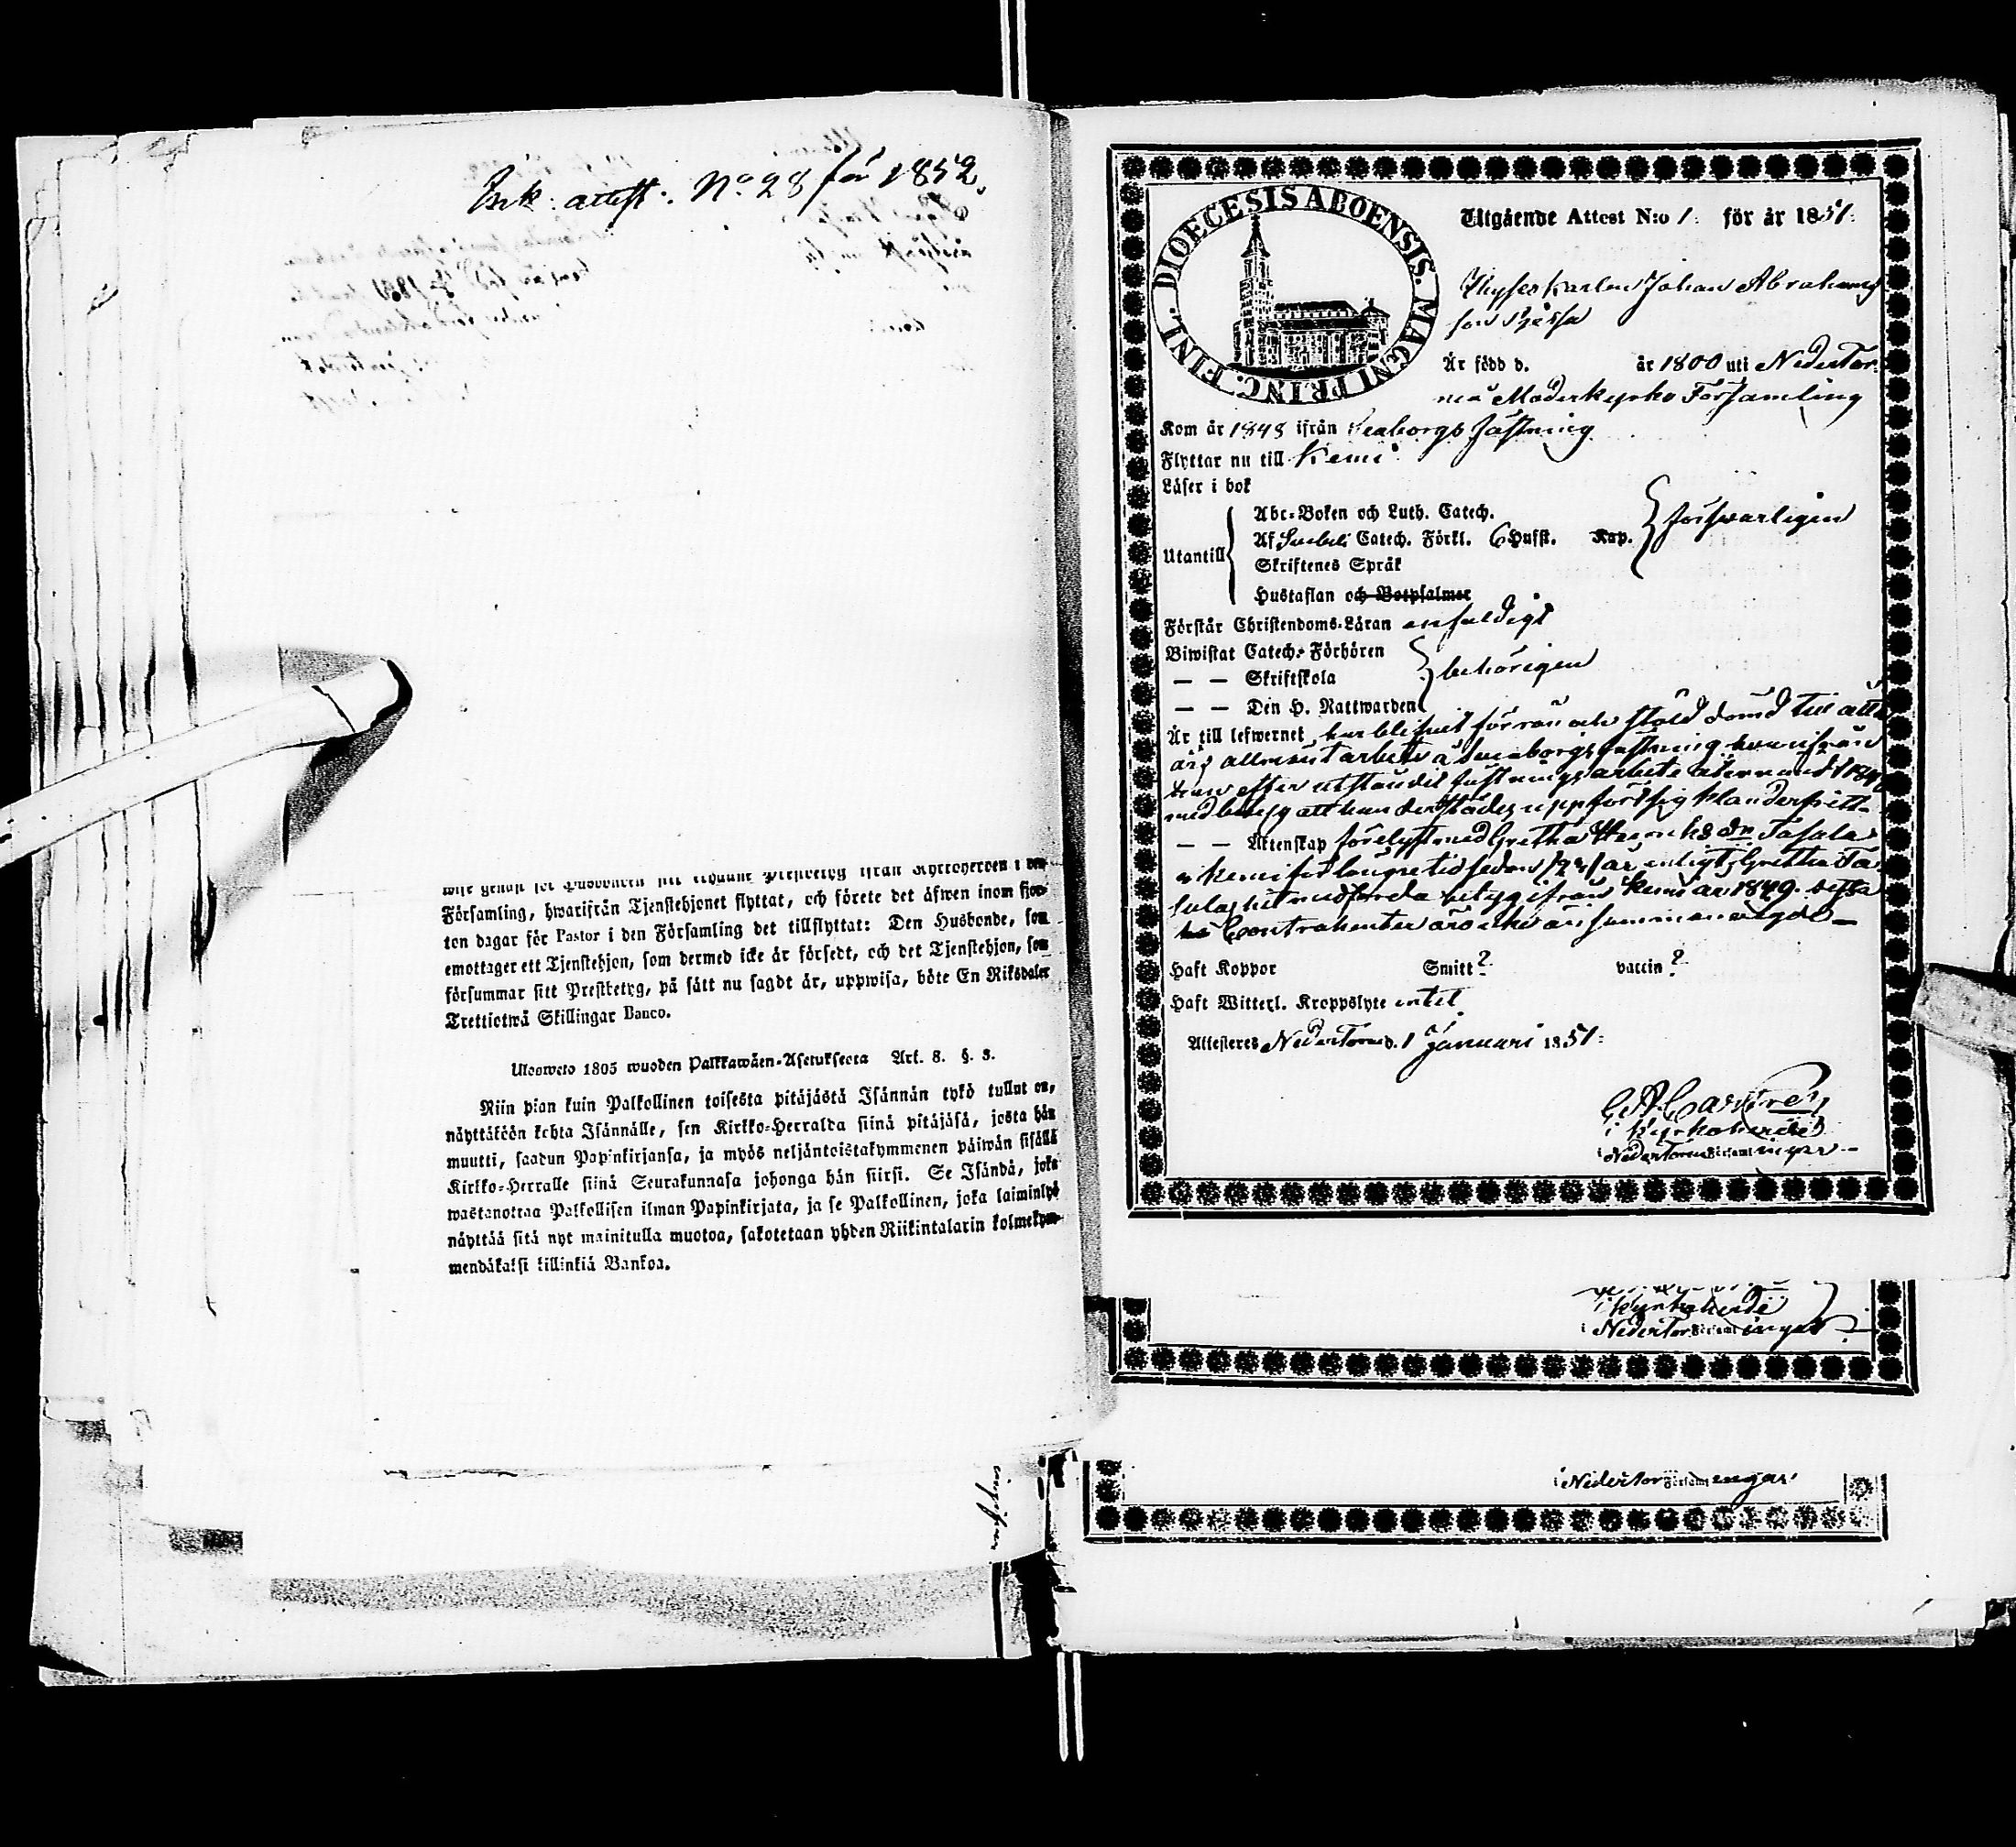 Ink. attest: No 28 för 1852.
Församling, hwarifrån Tjenstehjonet flyttat, och förete det äfwen inom fjor-
ton dagar för Pastor i den Församling det tillflyttat: Den Husbonde, som
emottager ett Tjenstehjon, som dermed icke är försedt, och det Tjenstehjon, som
försummar sitt Prestbetyg, på sätt nu sagdt är, uppwisa, böte En Riksdaler
Trettiotwå Skillingar Banco.
Ulosweto 1805 wuoden Palkkawäen-Asetuksesta Art. 8. §. 3.
Niin pian kuin Palkollinen toisesta pitäjästä Isännän tykö tullut on,
näyttäköön kohta Isännälle, sen Kirkko-Herralda siinä pitäjäsä, josta hän
muutti, saadun Papinkirjansa, ja myös neljäntoistakymmenen päiwän sisällä
Kirkko-Herralle siinä Seurakunnasa johonga hän siirsi. Se Isändä, joka
wastanottaa Palkollisen ilman Papinkirjata, ja se Palkollinen, joka laiminlyö
näyttää sitä nyt mainitulla muotoa, sakotetaan yhden Riikintalarin kolmekym-
mendäkaksi killinkiä Bankoa.
DIOECESIS ABOENSIS. MAGNI PRINC. FINL.
Utgående Attest N:o 1. för år 1851.
Johan Abrahams
son
Är född d. år 1800 uti Nedertor
neå Moderkyrko Församling
Kom år 1848 ifrån Sveaborgs fästning
Flyttar nu till Kemi
Läser i bok
Utantill
Abc-Boken och Luth. Catech.
Af Svebeli Catech. Förkl. 6 Hufst. Kap. försvarligen
Skriftenes Språk
Hustaflan och Botpsalmer
Förstår Christendoms-Läran enfaldigt
Biwistat Catech.-Förhören
— — Skriftskola behörigen
— — Den H. Nattwarden
Är till lefwernet, har blifvit för rån och stöld dömd till åtta
års allmänt arbete å Sveaborgs fästning hvarifrån
han efter utståndit fästnings arbete återvändt 1848
med betyg att han derstädes uppfört sig klanderfritt
— — Äktenskap förelyst med Gretha
i Kemi för längre tid sedan enligt Gretha
hit medförda betyg ifrån Kemi år 1849.
Contrahenter äro icke än sammanvigde —
Haft Koppor Smitt ? vaccin ?
Haft Witterl. Kroppslyte intet.
Attesteres Nedertorneå d. 1 Januari 1851:
Castrén
Kyrkoherde
i Nedertorneå Församlingar
Kyrkoherde
i Nedertor Församlingar
i Nedertor Församlingar